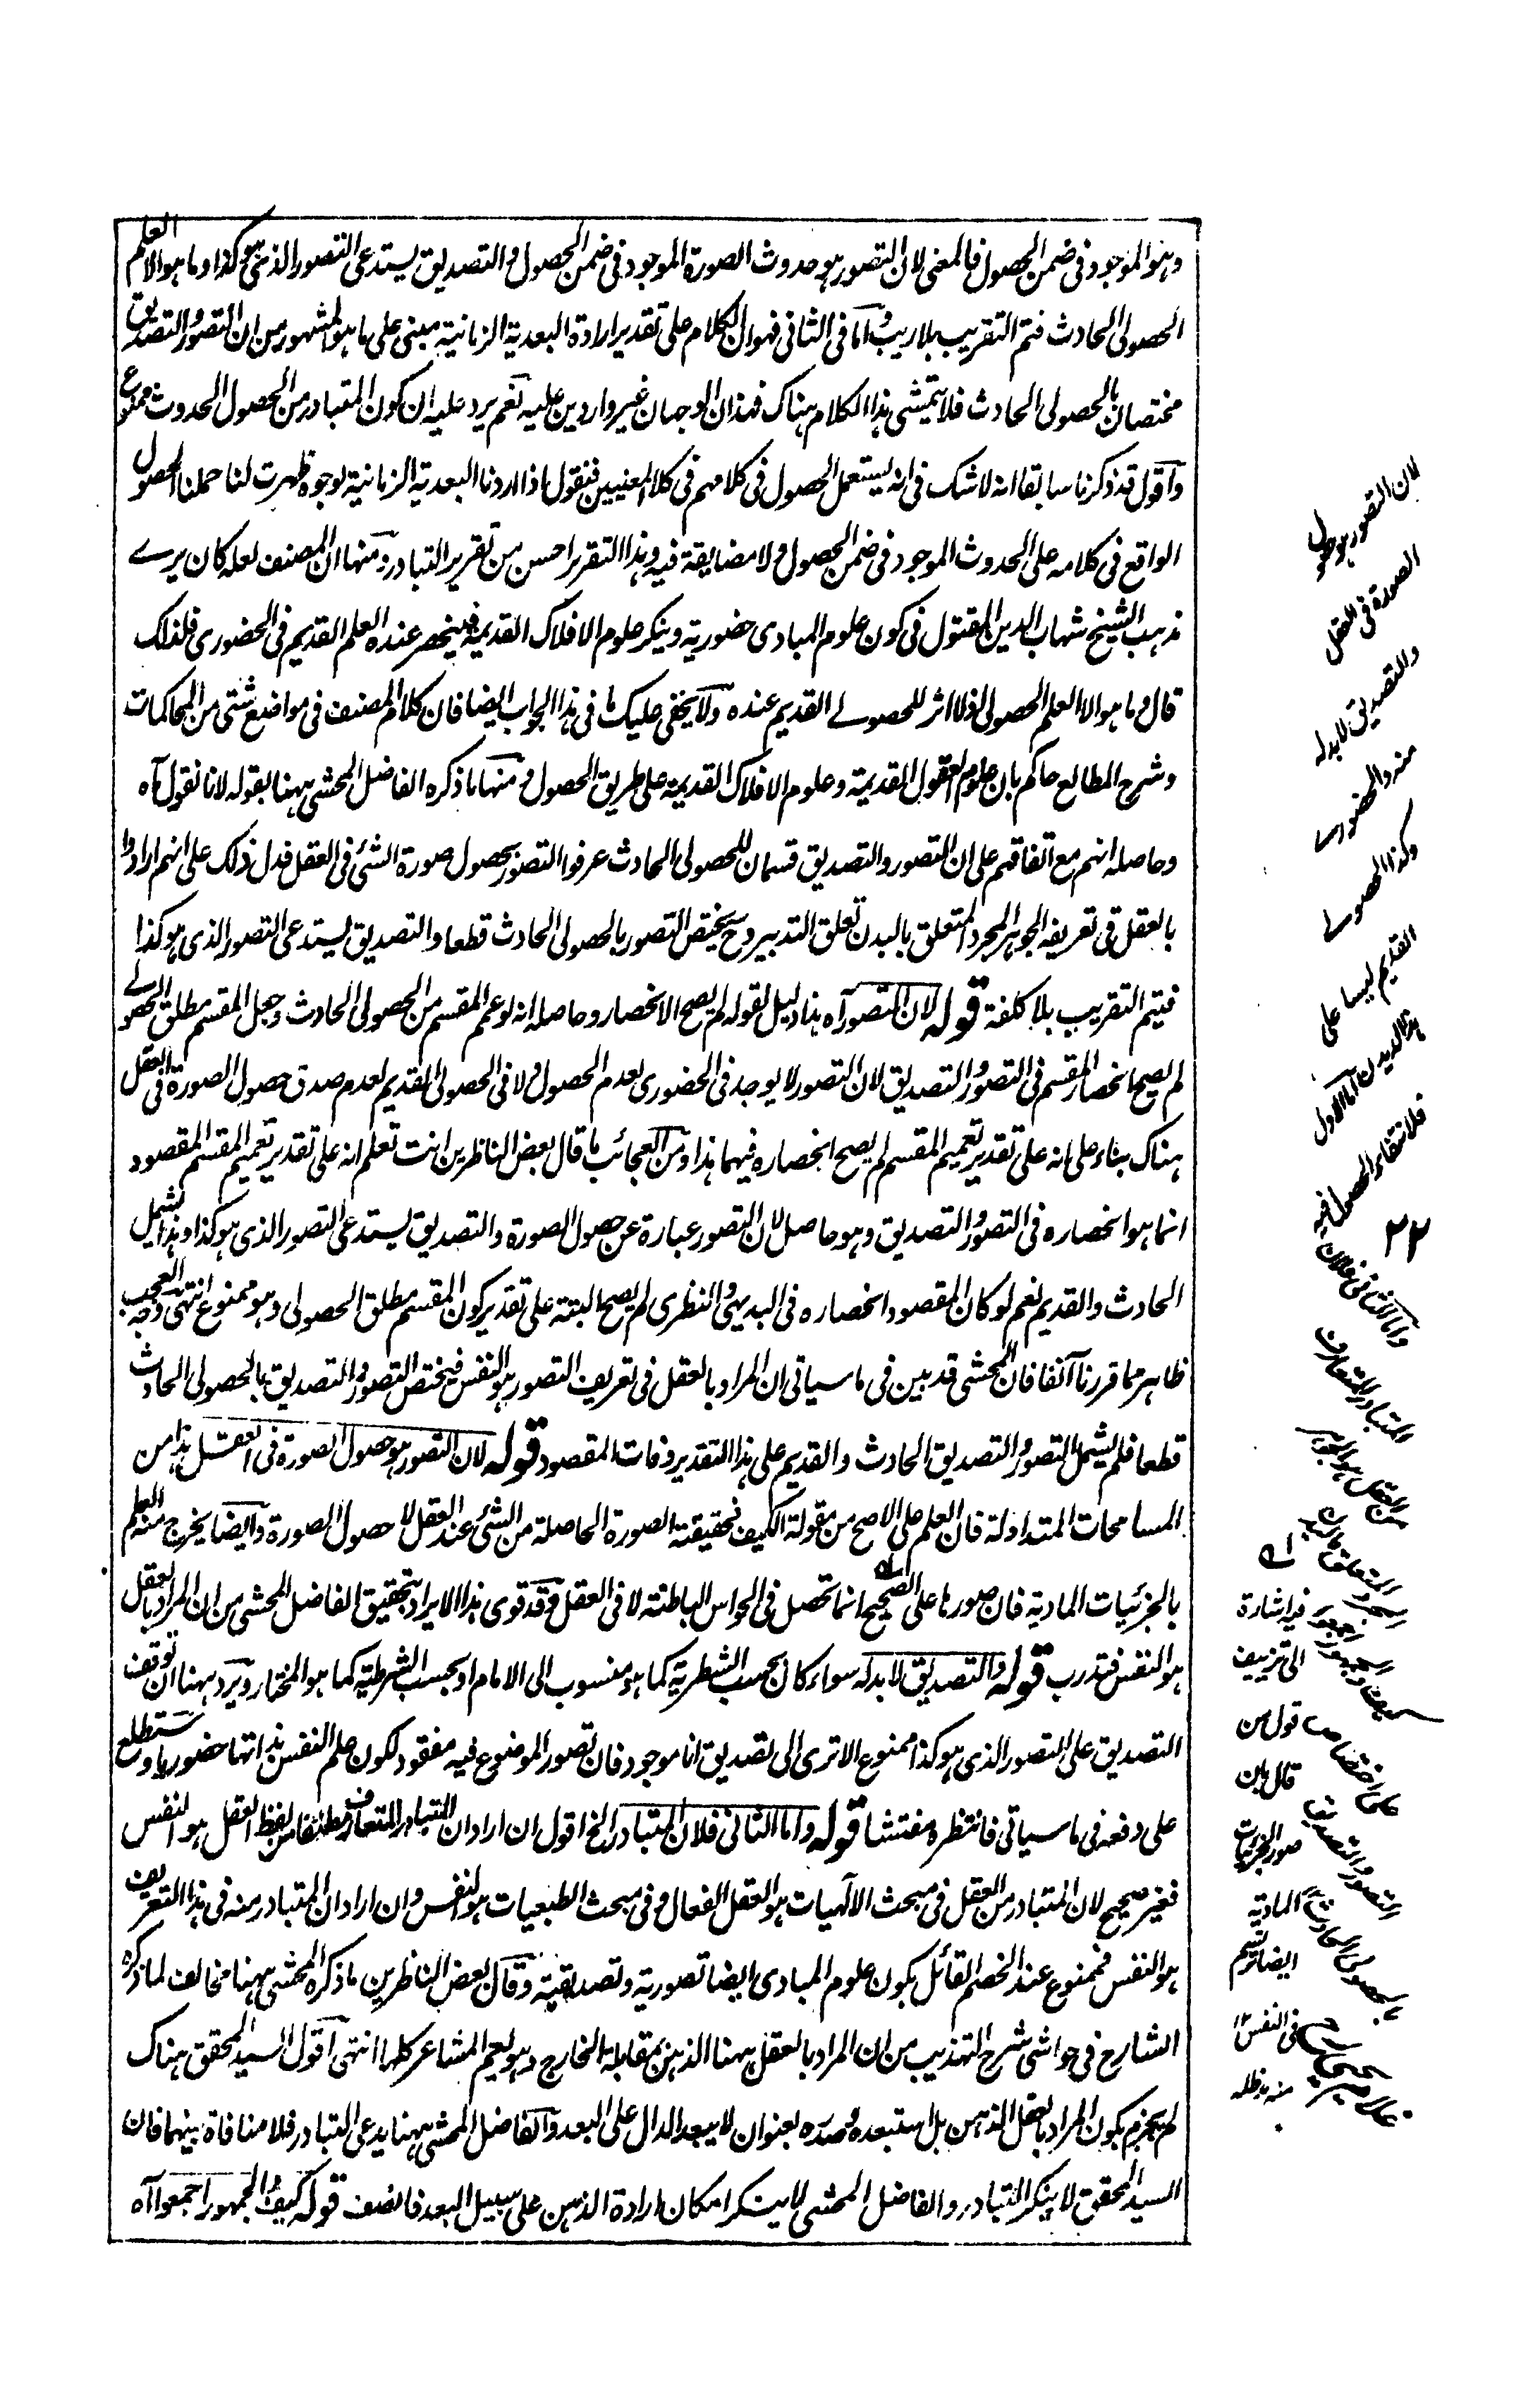 وهو الموجود فى ضمن الحصول فالمعنى لان التصور هو حدوث الصورة الموجود فى ضمن الحصول والتصديق يستدعى التصور الذى هو كذا وما هو الا العلم
الحصولى الحادث فتم التقريب بلا ريب واما فى الثانى فهو ان الكلام على تقدير ارادة البعدية الزمانية مبنى على ما هو المشهور من ان التصور والتصديق
مختصان بالحصولى الحادث فلا يتمشى هذا الكلام هناك فهذان الوجهان غير واردين عليه نعم يرد عليه ان كون المتبادر من الحصول الحدوث ممنوع
واقول قد ذكرنا سابقا انه لا شك فى انه يستعمل الحصول فى كلامهم فى كلا المعنيين فنقول اذا اردنا البعدية الزمانية لوجوه ظهرت لنا حملنا الحصول
الواقع فى كلامه على الحدوث الموجود فى ضمن الحصول ولا مضايقة فيه وهذا التقرير احسن من تقرير التبادر ومنها ان المصنف لعله كان يرے
مذهب الشيخ شهاب الدين المقتول فى كون علوم المبادى حضورية وينكر علوم الافلاك القديمة فينحصر عنده العلم القديم فى الحضورى فلذلك
قال وما هو الا العلم الحصولى اذ لا اثر للحصولے القديم عنده ولا يخفى عليك ما فى هذا الجواب ايضا فان كلام المصنف فى مواضع شتى من المحاكمات
وشرح المطالع حاكم بان علوم العقول القديمة وعلوم الافلاك القديمة على طريق الحصول ومنها ما ذكره الفاضل المحشى ههنا بقوله لانا نقول آه
وحاصله انهم مع اتفاقهم على ان التصور والتصديق قسمان للحصولى الحادث عرفوا التصور بحصول صورة الشئ فى العقل فدل ذلك على انهم ارادوا
بالعقل فى تعريفه الجوهر المجرد المتعلق بالبدن تعلق التدبير وح يختص التصور بالحصولى الحادث قطعا والتصديق يستدعى التصور الذى هو كذا
فيتم التقريب بلا كلفة قوله لان التصور آه هذا دليل لقوله لم يصح الانحصار وحاصله انه لو عمم المقسم من الحصولى الحادث وجعل المقسم مطلق الحصولے
لم يصح انحصار المقسم فى التصور والتصديق لان التصور لا يوجد فى الحضورى لعدم الحصول ولا فى الحصولى القديم لعدم صدق حصول الصورة فى العقل
هناك بناء على انه على تقدير تعميم المقسم لم يصح انحصاره فيهما هذا ومن العجائب ما قال بعض الناظرين انت تعلم انه على تقدير تعميم المقسم المقصود
انما هو انحصاره فى التصور والتصديق وهو حاصل لان التصور عبارة عن حصول الصورة والتصديق يستدعى التصور الذى هو كذا وهذا يشمل
الحادث والقديم نعم لو كان المقصود انحصاره فى البديهى والنظرى لم يصح البتة على تقدير كون المقسم مطلق الحصولى وهو ممنوع انتهى وجه العجب
ظاهر مما قررنا آنفا فان المحشى قد بين فى ما سياتى ان المراد بالعقل فى تعريف التصور هو النفس فيختص التصور والتصديق بالحصولى الحادث
قطعا فلم يشمل التصور والتصديق الحادث والقديم على هذا التقدير وفات المقصود قوله لان التصور هو حصول الصورة فى العقل هذا من
المسامحات المتداولة فان العلم على الاصح من مقولة الكيف فحقيقته الصورة الحاصلة من الشئ عند العقل لا حصول الصورة وايضا يخرج منه العلم
بالجزئيات المادية فان صورها على الصحيح انما تحصل فى الحواس الباطنة لا فى العقل وقد قوى هذا الايراد بتحقيق الفاضل المحشى من ان المراد بالعقل
هو النفس فتدرب قوله والتصديق لا بد له سواء كان بحسب الشطرية كما هو منسوب الى الامام او بحسب الشرطية كما هو المختار ويرد ههنا ان توقف
التصديق على التصور الذى هو كذا ممنوع الا ترى الى تصديق انا موجود فان تصور الموضوع فيه مفقود لكون علم النفس بذاتها حضوريا وستطلع
على دفعه فى ما سياتى فانتظره مفتشا قوله واما الثانى فلان المتبادر الخ اقول ان اراد ان المتبادر المتعارف مطلقا من لفظ العقل هو النفس
فغير صحيح لان المتبادر من العقل فى مبحث الآلهيات هو العقل الفعال وفى مبحث الطبعيات هو النفس وان اراد ان المتبادر منه فى هذا التعريف
هو النفس فممنوع عند الخصم القائل بكون علوم المبادى ايضا تصورية وتصديقية وقال بعض الناظرين ما ذكره المحشى ههنا مخالف لما ذكره
الشارح فى حواشى شرح التهذيب من ان المراد بالعقل ههنا الذهن بمقابلة الخارج وهو يعم المشاعر كلها انتهى اقول السيد المحقق هناك
لم يجزم بكون المراد بالعقل الذهن بل استبعده وصدره بعنوان لا يبعد الدال على البعد والفاضل المحشى ههنا يدعى التبادر فلا منافاة بينهما فان
السيد المحقق لا ينكر التبادر والفاضل المحشى لا ينكر امكان ارادة الذهن على سبيل البعد فانصف قوله كيف والجمهور اجمعوا آه
لان التصور هو حصول
الصورة فى العقل
والتصديق لا بد له
منه والحضورے
وكذا الحصولے
القديم ليسا على
هذا الديدن اما الاول
فلانتفاء الحصول فيه
٢٢
واما الثانى فلان
المتبادر المتعارف
من العقل هو الجوهر
المجرد المتعلق بالبدن
كيف والجمهور اجمعوا
على اختصاص
التصور والتصديق
بالحصولى الحادث
غلام يحيى
فيه اشارة
الى تزييف
قول من
قال بان
صور الجزئيات
المادية
ايضا ترتسم
فى النفس
منه مد ظله